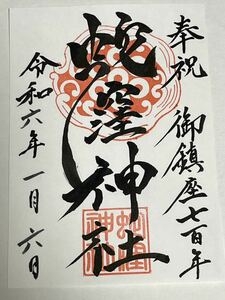 奉祝 御鎮座七百年
蛇窪神社
令和六年一月六日
蛇窪
神社